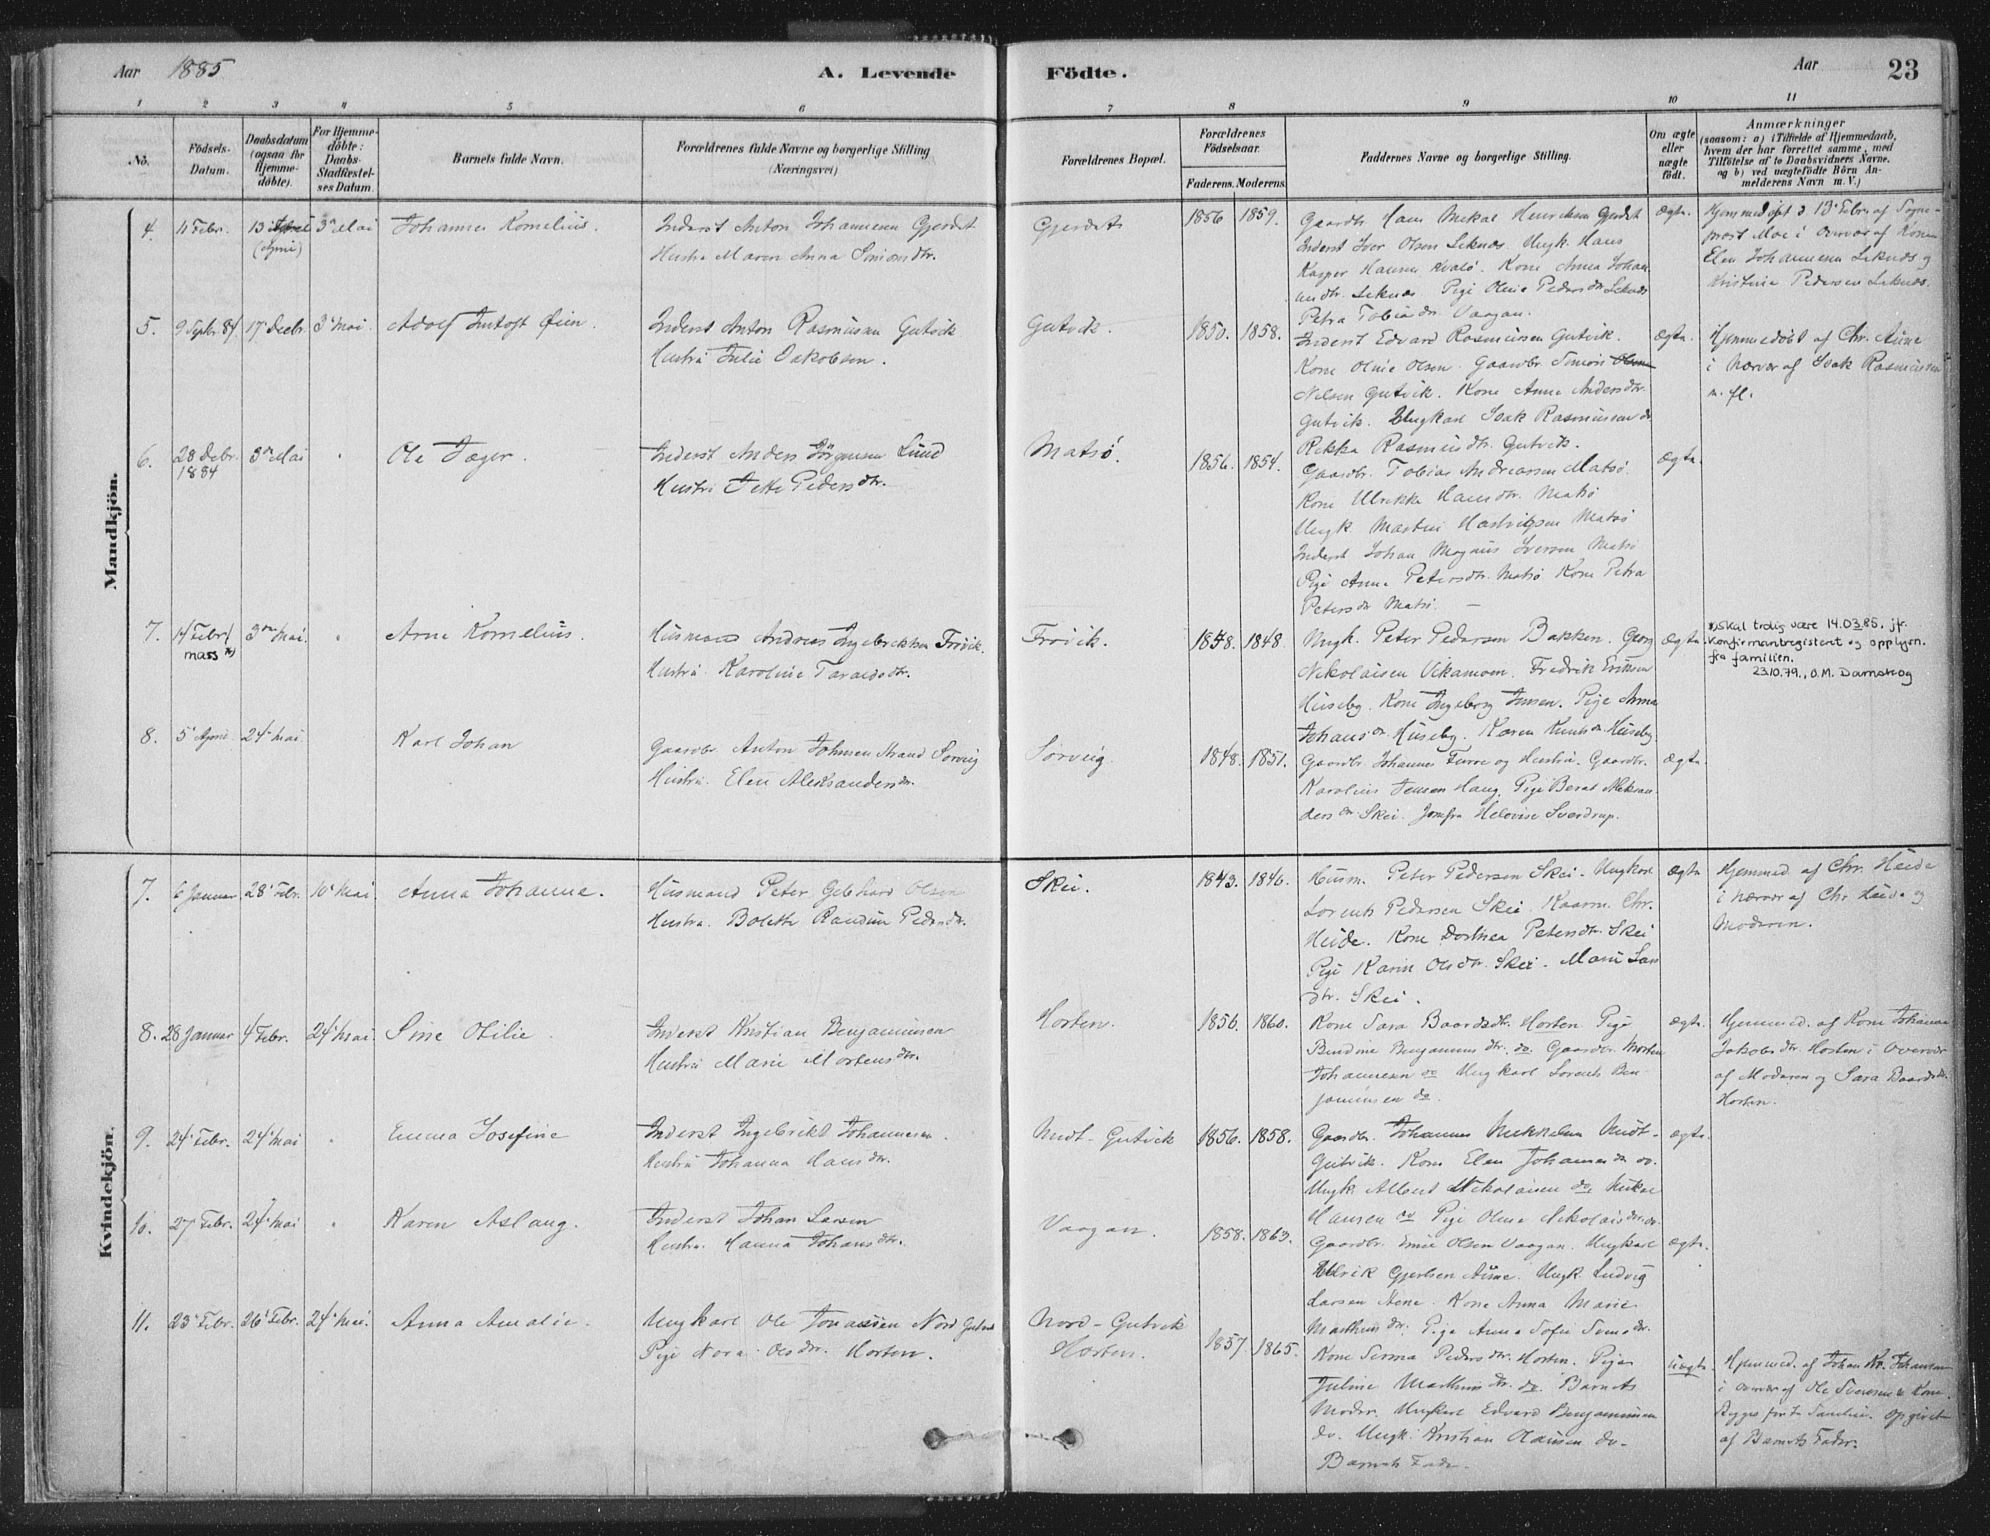 Aar 1885
A. Levende
Födte.
Aar
23
1 2 3 4 5 6 7 8 9 10 11
No.
Födsels-
Datum.
Daabsdatum
(ogsaa for
Hjemme-
döbte).
For Hjemme-
döbte:
Daabs-
Stadfæstel-
ses Datum.
Barnets fulde Navn.
Forældrenes fulde Navne og borgerlige Stilling
(Næringsvei)
Forældrenes Bopæl.
Forældrenes
Födselsaar.
Faderens. Moderens.
Faddernes Navne og borgerlige Stilling.
Om ægte
eller
uægte
födt.
Anmærkninger
(saasom: a) i Tilfælde af Hjemmedaab,
hvem der har forrettet samme, med
Tilföielse af to Daabsvidners Navne.
og b) ved uægtefödte Börn An-
melderens Navn m. V.)
Mandkjön.
4. 11 Febr. 13 3die Mai Johannes Kornelius. Inderst Anton Johannesen Gjerdet
Hustru Maren Anna Simonsdtr.
Gjerdet 1856 1859.
Gaardbr. Hans Mikal Henriksen Gjerdet
Inderst Iver Olsen Leknæs. Ungk. Hans
Kasper Hansen Kvalø. Kone Anna Johan
nesdtr. Leknæs Pige Oline Pedersdtr Leknæs
Petra Tobiasdtr. Vaagan.
ægte.
Hjemmedøbt d 13 Febr. af Sogne-
prest Moe i Overvær af Konen
Elen Johannesen Leknæs og
Kristine Pedersen Leknæs.
5. 9 Septr. 84. 17 Decbr. 3die Mai. Adolf Intoft Øien. Inderst Anton Rasmussen Gutvik
Hustru Julie Jakobsen.
Gutvik. 1850. 1858.
Inderst Edvard Rasmussen Gutvik.
Kone Oline Olsen. Gaardbr. Simon Olsen
Nilsen Gutvik. Kone Anne Andersdtr.
Gutvik. Ungkarl Isak Rasmussen do
Rikka Rasmusdtr. Gutvik.
ægte.
Hjemmedøbt af Chr. Aune
i Nærvær af Isak Rasmussen
m. fl.
6. 28 Decbr. 1884 3die Mai Ole Jæger. Inderst Anders Jörgensen Lund
Hustru Jette Pedersdtr.
Matsø. 1856. 1854.
Gaardbr. Tobias Andreassen Matsø
Kone Ulrikke Hansdtr. Matsø
Ungk. Martin Hartvigsen Matsø
Inderst Johan Magnus Iversen Matsø
Pige Anna Petersdtr. Matsø Kone Petra
Petersdtr Matsø. —
ægte.
7. 14 Febr/mars *) 3die Mai. Arne Kornelius. Husmand Andreas Ingebrektsen Frøvik.
Hustru Karoline Taraldsdtr.
Frøvik. 1848. 1848
Ungk. Peter Pedersen Bakken. Georg
Nikolaisen Vikamoen. Fredrik Eriksen
Huseby. Kone Ingeborg Jensen. Pige Anna
Johansdr. Huseby. Karen Knutsdr. Huseby.
ægte.
*) skal trolig være 14.03.85, jfr.
konfirmantregisteret og opplysn.
fra familien.
23.10.79., O.M. Damskog
8. 5 April. 24 Mai Karl Johan Gaardbr Anton Johnsen Strand Sørvig
Hustru. Elen Aleksandersdr.
Sørvig. 1848. 1851.
Gaardbr Johannes Furre og Hustru. Gaardbr.
Karolius Jensen Haug. Pige Beret Aleksan
dersdr. Skei. Jomfru Helovise Sverdrup.
ægte.
Kvindekjön.
7. 6 Januar 28 Febr. 10 Mai. Anna Johanna. Husmand Peter Gebhard Olsen
Hustru Bolette Randine Pedersdtr.
Skei. 1843. 1846.
Husm. Peter Pedersen Skei. Ungkarl
Lorents Pedersen Skei. Kaarm. Chr.
Heide. Kone Dorthea Petersdtr. Skei
Pige Karin Olsdtr. Skei. Marie Lars
dtr. Skei.
ægte
Hjemmed. af Chr. Heide
i Nærvær af Chr Heide og
Moderen.
8. 28 Januar 4 Febr. 24 Mai. Sine Otilie. Inderst Kristian Benjaminsen
Hustru Marie Mortensdtr.
Horten. 1856. 1860.
Kone Sara Baardsdtr. Horten Pige
Bendine Benjaminsdtr. do Gaardbr. Morten
Johannesen do Ungkarl Lorents Ben
jaminsen do.
ægte.
Hjemmed. af Kone Johanna
Jakobsdtr. Horten i Overvær
af Moderen og Sara Baardsdtr.
Horten.
9. 24 Febr. 24 Mai Emma Josefine Inderst Ingebrikt Johannesen.
Hustru Johanna Hansdtr.
Midt-Gutvik 1856. 1858.
Gaardbr. Johannes Mikkelsen Midt-
Gutvik. Kone Elen Johannesdtr do.
Ungk. Albert Nikolaisen do. Mikal
Hansen do Pige Oline Nikolaisdtr do.
ægte.
10. 27 Febr. 24 Mai Karen Aslaug. Inderst Johan Larsen
Hustru. Hanna Johansdtr.
Vaagan. 1858. 1863.
Gaardbr. Emil Olsen Vaagan. Ungkarl
Ulrik Gjertsen Aune. Ungk. Ludvig
Larsen Aune. Kone Anna Marie
Mathisdtr. Pige Anna Sofie Svensdtr.
ægte.
11. 23 Febr. 26 Febr. 24 Mai. Anna Amalie. Ungkarl Ole Jonassen Nord Gutvik
Pige Nora Olsdtr. Horten.
Nord-Gutvik
Horten. 1857. 1865.
Kone Serina Pedersdtr. Horten. Pige
Juline Mathisdtr. do. Barnets
Moder. Ungkarl Edvard Benjaminsen
do. Ungk. Kristian Olausen do.
Barnets Fader.
uægte.
Hjemmed. af Johan Kr. Johansen
i Overvær af Ole Sverssen &amp; Kone.
opgivet
af Barnets Fader.